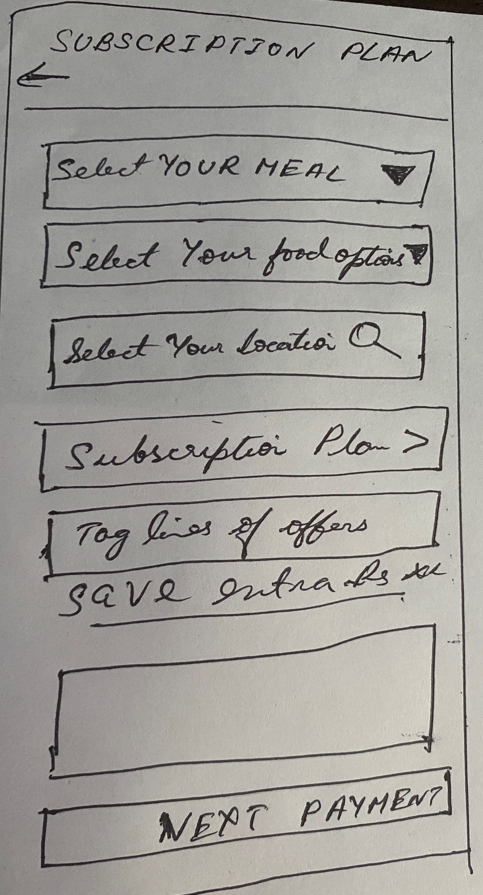 SUBSCRIPTION PLAN
Select YOUR MEAL
Select Your food options
Select Your Location
Subscription Plan >
Tag lines of offers
SAVE extra Rs
NEXT PAYMENT